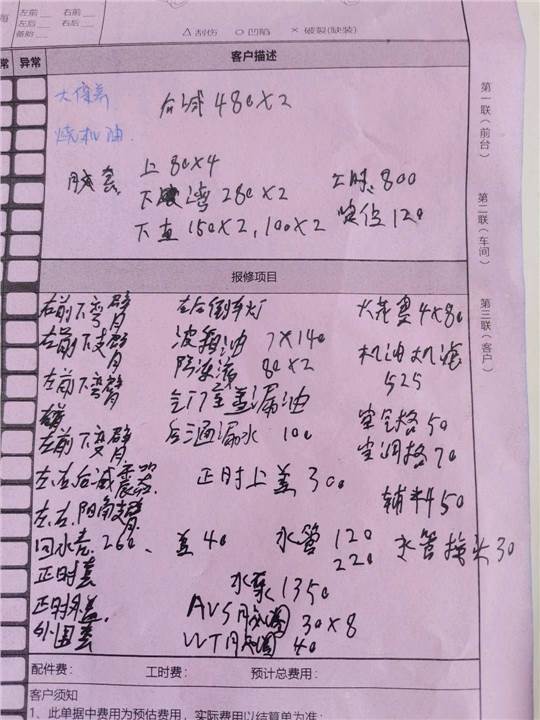 左前 右前
左后 右后
备胎
△ 刮伤 ○ 凹陷 × 破裂(缺装)
常 异常 客户描述
大保养 后减 480×2
烧机油
胶套 上 80×4 工时 800
下弯 280×2 定位 120
下直 150×2, 100×2
第一联(前台)
第二联(车间)
第三联(客户)
报修项目
右前下弯臂 左右倒车灯 火花塞 4×80
左前下支臂 波箱油 7×140 机油机滤
左前下弯臂 防冻液 80×2 525
气门室盖漏油 空气格 50
左前下弯臂 后通漏水 100 空调格 70
左右后减震器 正时上盖 300 辅料 450
左右
回水壳 260、盖 40 水管 120 水管接头 30
220
正时盖 水泵 1350
正时外盖 AVS胶圈 30×8
外围盖 VVT胶圈 40
配件费: 工时费: 预计总费用:
客户须知
1、此单据中费用为预估费用,实际费用以结算单为准;